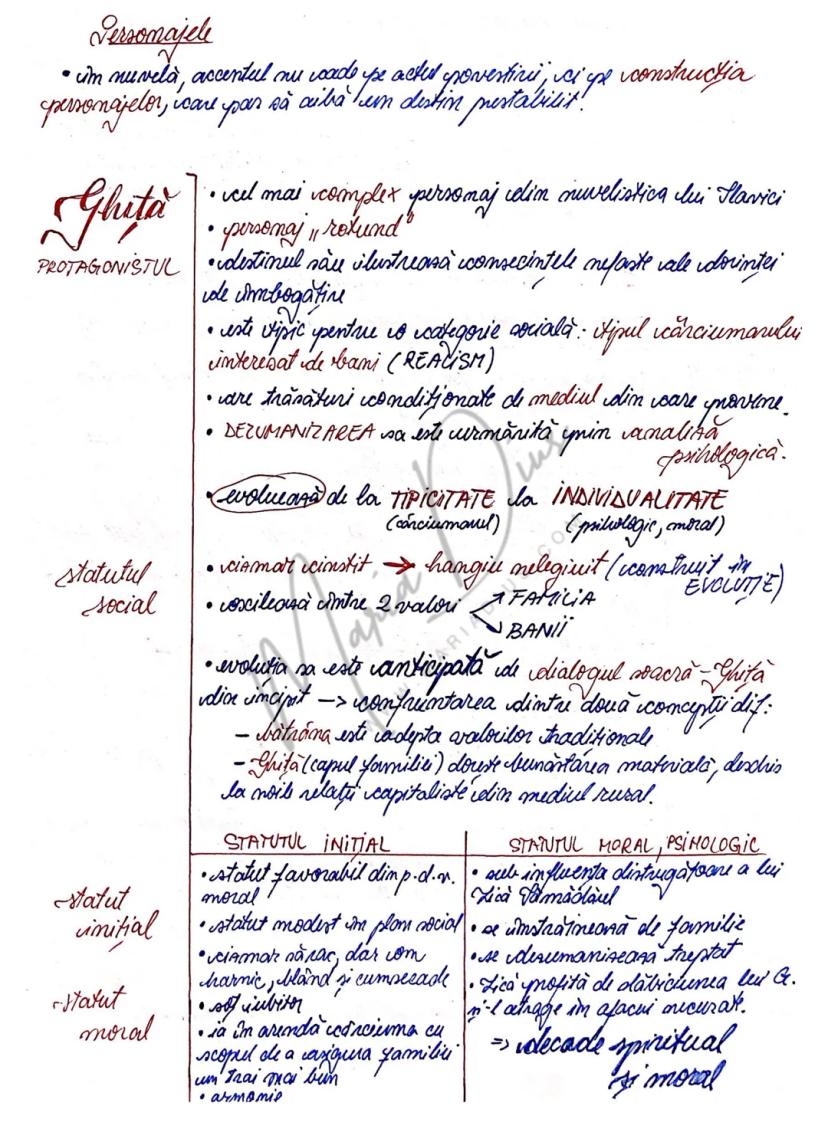 Personajele
• în nuvelă, accentul nu cade pe actul povestirii, ci pe construcția
personajelor, care par să aibă un destin prestabilit.
Ghiță
PROTAGONISTUL
• cel mai complex personaj din nuvelistica lui Slavici
• personaj „rotund"
• destinul său ilustrează consecințele nefaste ale dorinței
de îmbogățire
• este tipic pentru o categorie socială: tipul cârciumarului
interesat de bani (REALISM)
• are trăsături condiționate de mediul din care provine.
• DEZUMANIZAREA sa este urmărită prin analiză
psihologică.
• evoluează de la TIPICITATE la INDIVIDUALITATE
(cârciumarul) (psihologic, moral)
statutul
social
• cizmar cinstit → hangiu nelegiuit (construit în
EVOLUȚIE)
• oscilează între 2 valori
FAMILIA
BANII
• evoluția sa este anticipată de dialogul soacră-Ghiță
din incipit -> confruntarea dintre două concepții dif:
- bătrâna este adepta valorilor tradiționale
- Ghiță (capul familiei) dorește bunăstarea materială, deschis
la noile relații capitaliste din mediul rural.
STATUTUL INIȚIAL
STATUTUL MORAL, PSIHOLOGIC
statut
inițial
statut
moral
• statut favorabil din p.d.v.
moral
• statut modest în plan social
• cizmar sărac, dar om
harnic, blând și cumsecade
• soț iubitor
• ia în arendă cârciuma cu
scopul de a asigura familiei
un trai mai bun
• armonie
• sub influența distrugătoare a lui
Lică Sămădăul
• se înstrăinează de familie
• se dezumanizează treptat
• Lică profită de slăbiciunea lui G.
și-l atrage în afaceri necurate.
=> decade spiritual
și moral
Maria Dius